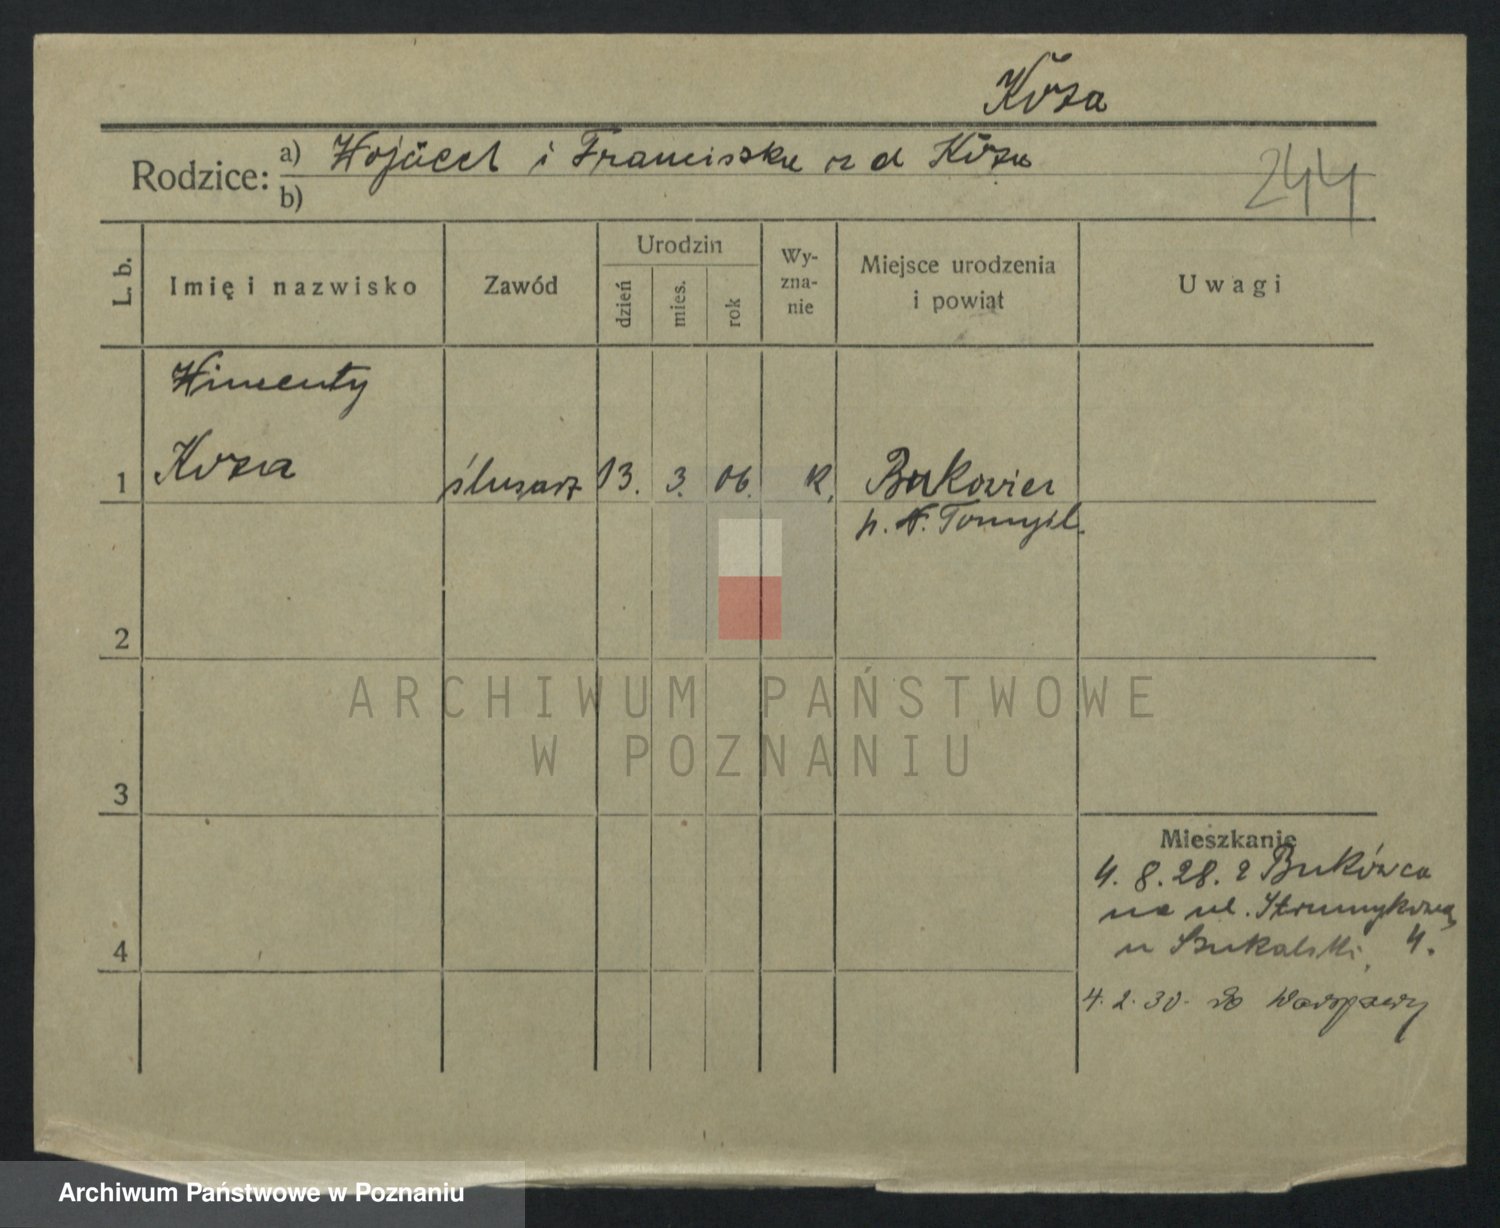 Koza
Rodzice: a) Wojciech i Franciszka z d Koza
b)
244
L. b. Imię i nazwisko Zawód Urodzin dzień mies. rok Wy-zna-nie Miejsce urodzenia i powiat Uwagi
Wincenty
1 Koza ślusarz 13. 3. 06. K. Bukowiec
p. N. Tomyśl.
2
ARCHIWUM PAŃSTWOWE
W POZNANIU
3
Mieszkanie
4. 8. 28. z Bukówca
na ul. Strumykową
4 u Szukalski, 4.
4. 2. 30. do Warszawy
Archiwum Państwowe w Poznaniu